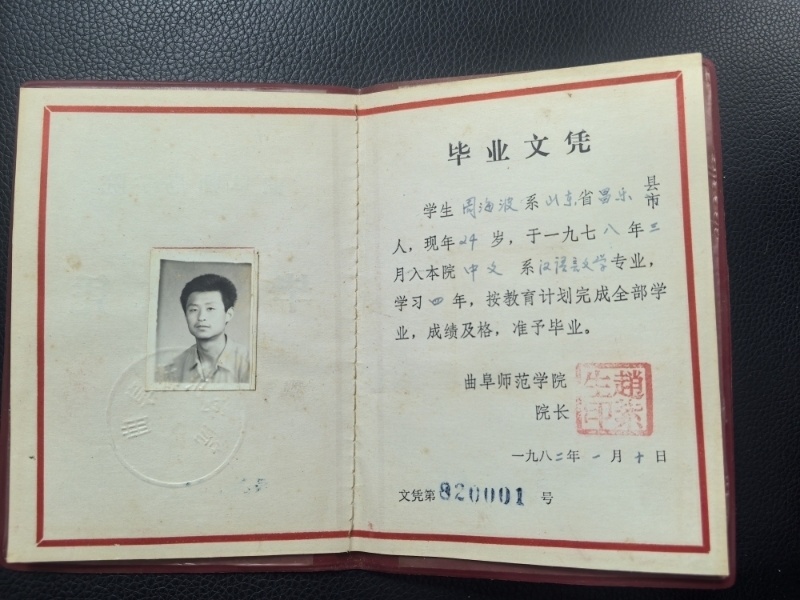 毕业文凭
学生周海波系山东省昌乐县市
人，现年24岁，于一九七八年三
月入本院中文系汉语言文学专业，
学习四年，按教育计划完成全部学
业，成绩及格，准予毕业。
曲阜师范学院
院长
趙紫生印
一九八二年一月十日
文凭第820001号